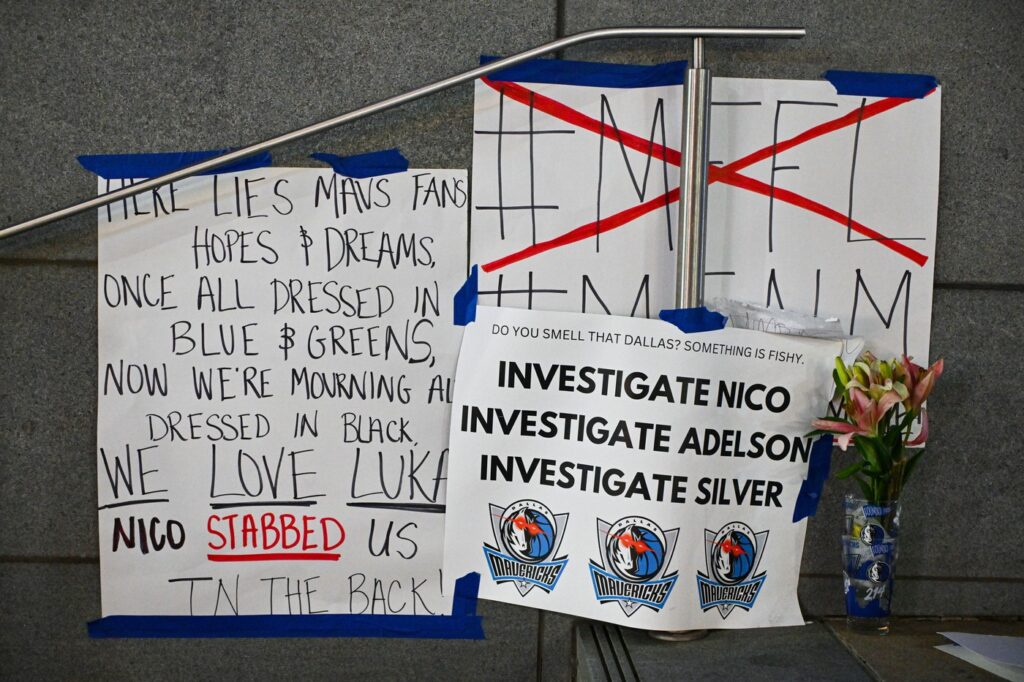 HERE LIES MAVS FANS
HOPES & DREAMS,
ONCE ALL DRESSED IN
BLUE & GREENS,
NOW WE'RE MOURNING AL
DRESSED IN BLACK,
WE LOVE LUKA
NICO STABBED US
IN THE BACK!
#MFFL
DO YOU SMELL THAT DALLAS? SOMETHING IS FISHY.
INVESTIGATE NICO
INVESTIGATE ADELSON
INVESTIGATE SILVER
DALLAS
MAVERICKS
DALLAS
MAVERICKS
DALLAS
MAVERICKS
214